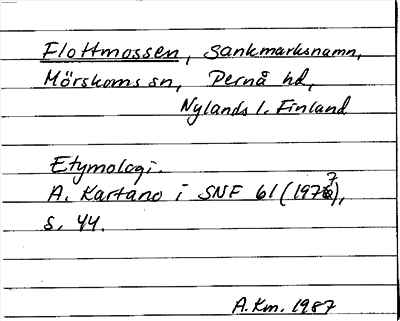 Flottmossen, sankmarksnamn,
Mörskoms sn, Pernå hd,
Nylands l. Finland
Etymologi.
A. Kartano i SNF 61 (1977),
s. 44.
A.Km. 1987